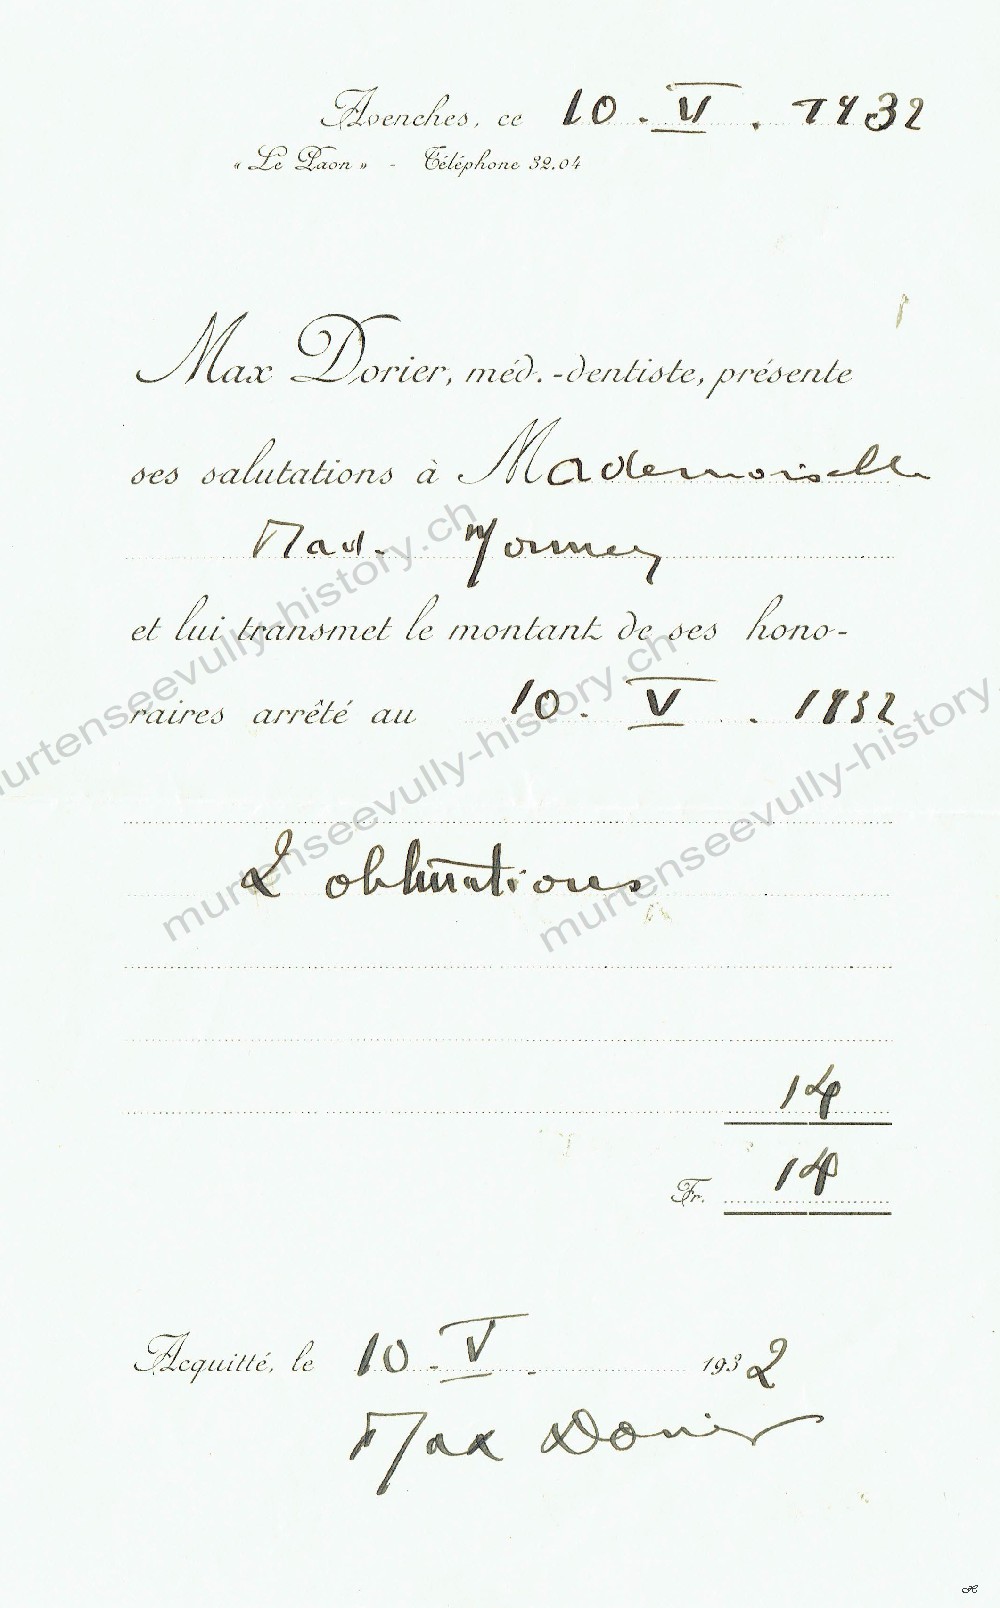 Avenches, ce 10. V. 1932
« Le Paon » - Téléphone 32.04
Max Dorier, méd.-dentiste, présente
ses salutations à Mademoiselle
Mad.
et lui transmet le montant de ses hono-
raires arrêté au 10. V. 1932
2 obturations
14
Fr. 14
Acquitté, le 10. V. 1932
Max Dorier
murtenseevully-history.ch
murtenseevully-history.ch
murtenseevully-history.